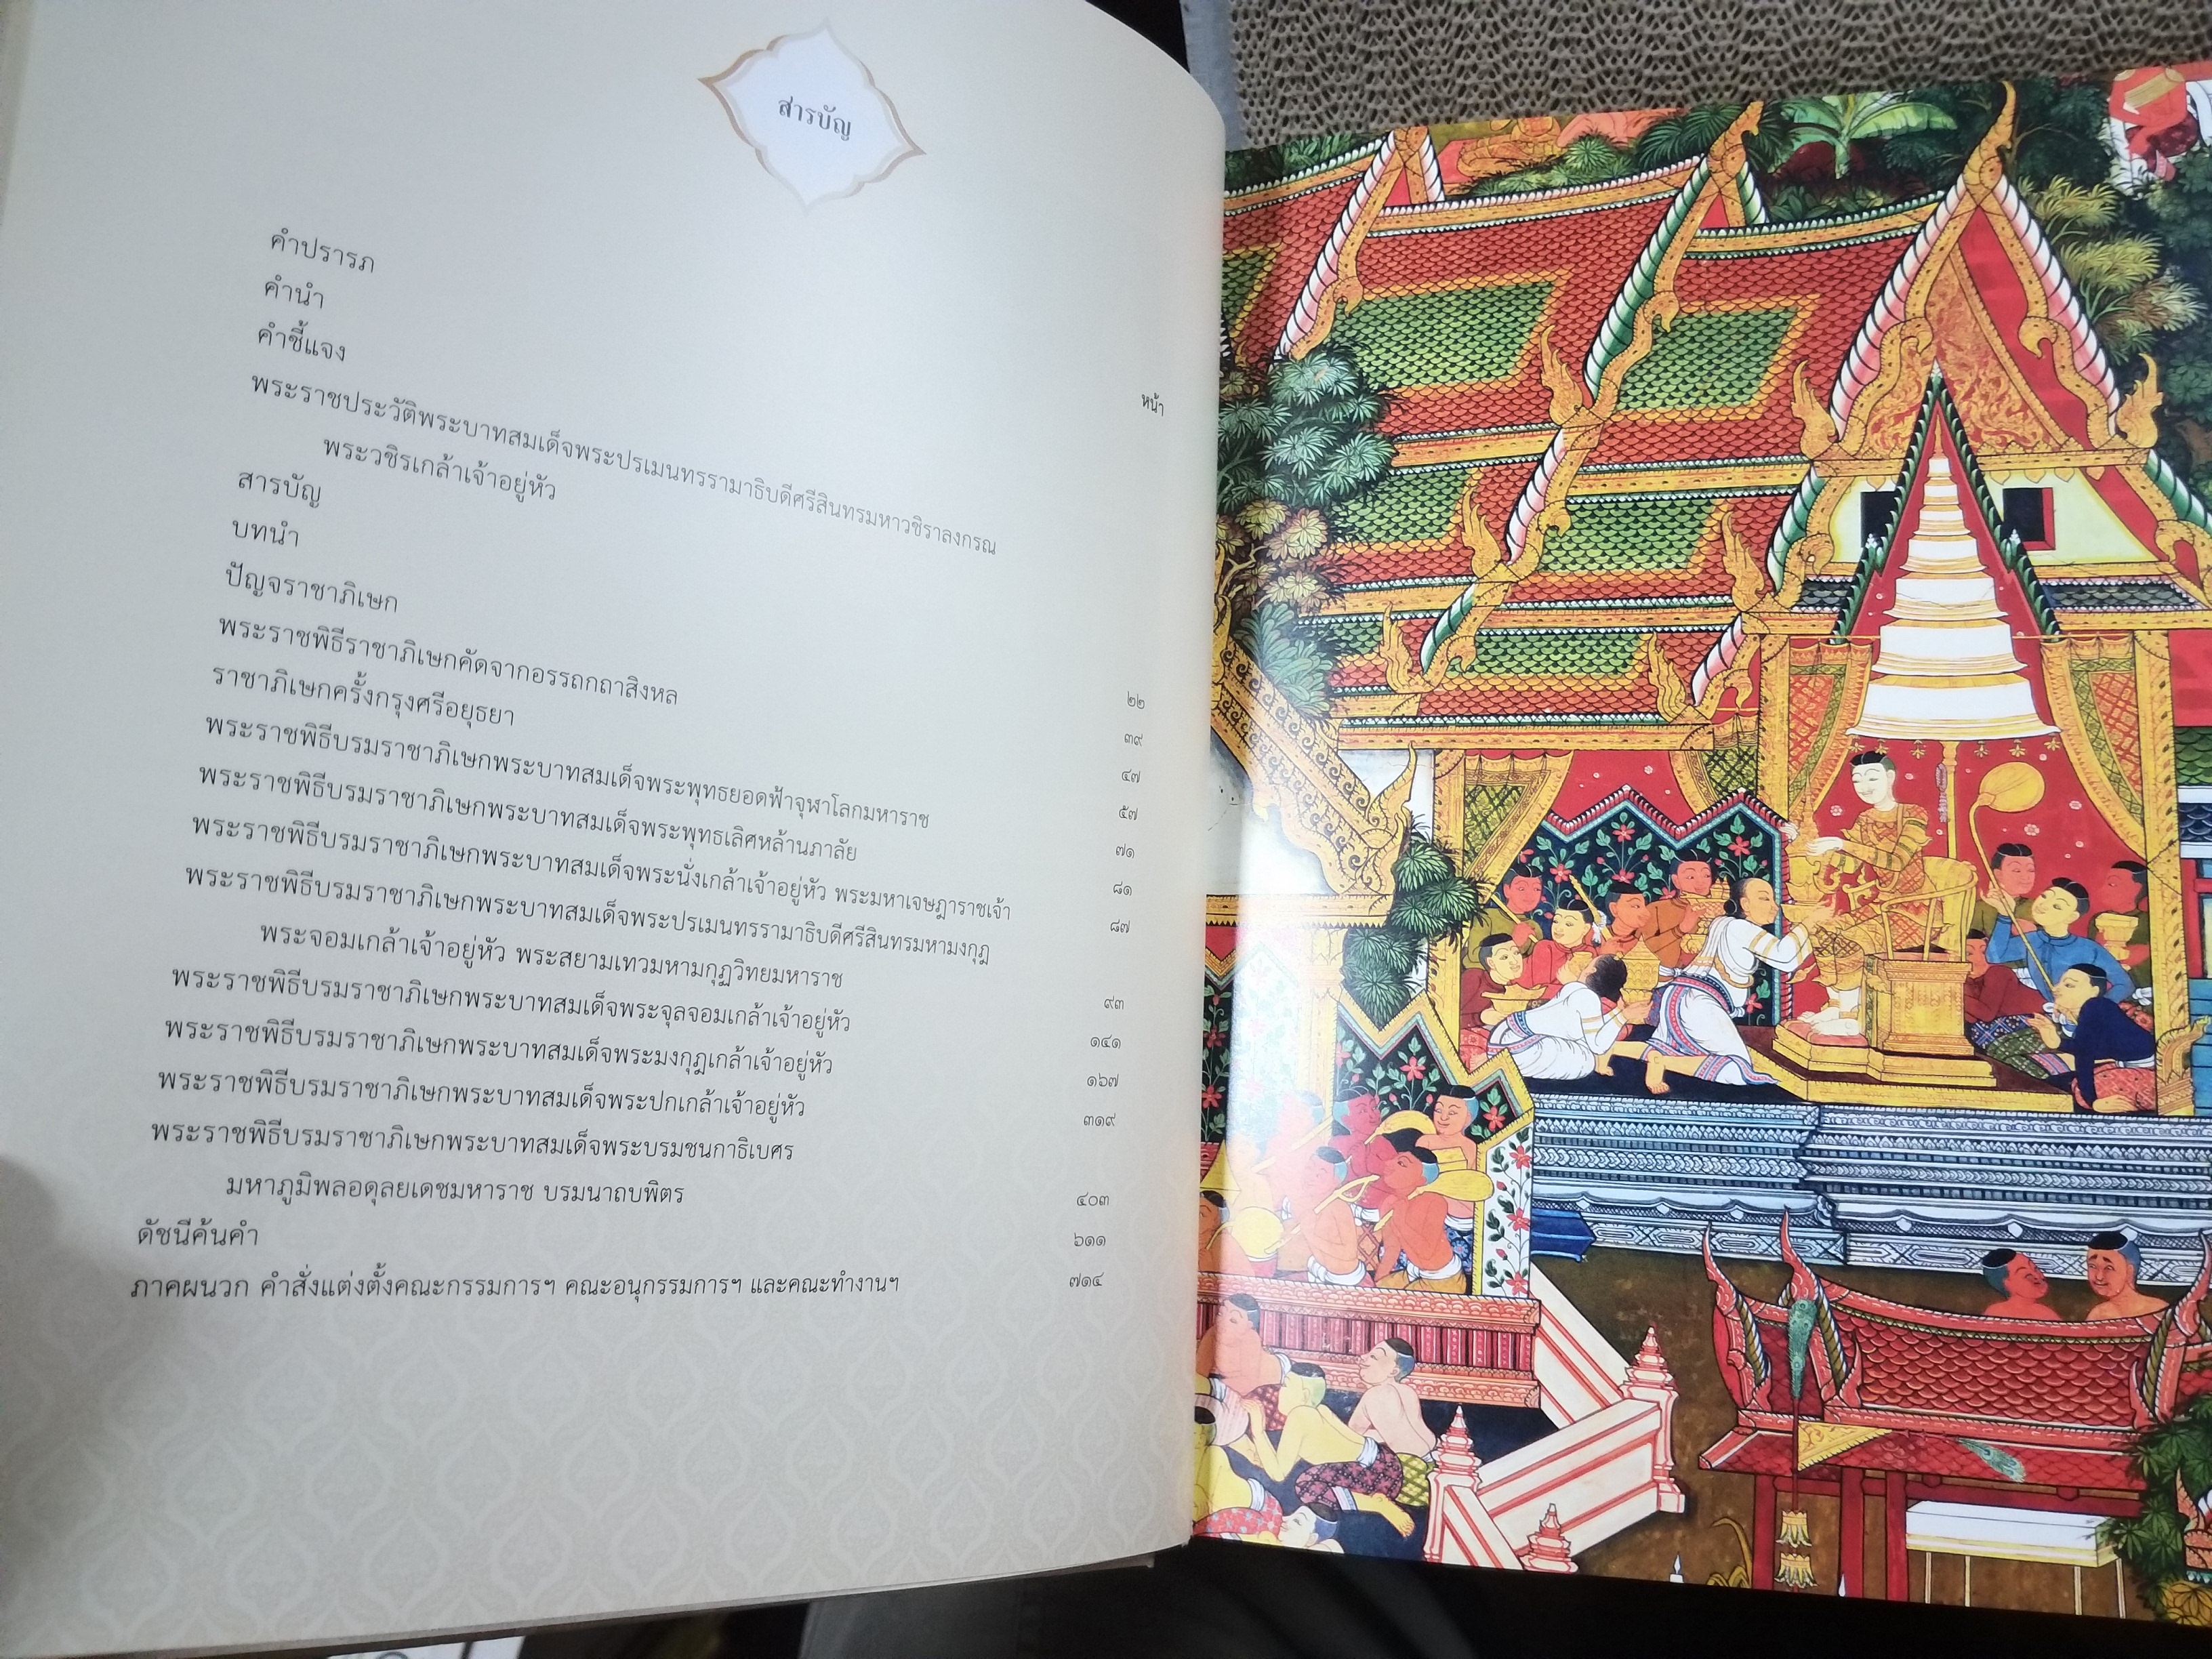 สารบัญ
หน้า
คำปรารภ
คำนำ
คำชี้แจง
พระราชประวัติพระบาทสมเด็จพระปรเมนทรรามาธิบดีศรีสินทรมหาวชิราลงกรณ
พระวชิรเกล้าเจ้าอยู่หัว
สารบัญ
บทนำ ๒๒
ปัญจราชาภิเษก ๓๙
พระราชพิธีราชาภิเษกคัดจากอรรถกถาสิงหล ๔๗
ราชาภิเษกครั้งกรุงศรีอยุธยา ๕๗
พระราชพิธีบรมราชาภิเษกพระบาทสมเด็จพระพุทธยอดฟ้าจุฬาโลกมหาราช ๗๑
พระราชพิธีบรมราชาภิเษกพระบาทสมเด็จพระพุทธเลิศหล้านภาลัย ๘๑
พระราชพิธีบรมราชาภิเษกพระบาทสมเด็จพระนั่งเกล้าเจ้าอยู่หัว พระมหาเจษฎาราชเจ้า ๘๗
พระราชพิธีบรมราชาภิเษกพระบาทสมเด็จพระปรเมนทรรามาธิบดีศรีสินทรมหามงกุฎ
พระจอมเกล้าเจ้าอยู่หัว พระสยามเทวมหามกุฏวิทยมหาราช ๙๓
พระราชพิธีบรมราชาภิเษกพระบาทสมเด็จพระจุลจอมเกล้าเจ้าอยู่หัว ๑๔๑
พระราชพิธีบรมราชาภิเษกพระบาทสมเด็จพระมงกุฎเกล้าเจ้าอยู่หัว ๑๖๗
พระราชพิธีบรมราชาภิเษกพระบาทสมเด็จพระปกเกล้าเจ้าอยู่หัว ๓๑๙
พระราชพิธีบรมราชาภิเษกพระบาทสมเด็จพระบรมชนกาธิเบศร
มหาภูมิพลอดุลยเดชมหาราช บรมนาถบพิตร ๔๐๓
ดัชนีค้นคำ ๖๑๑
ภาคผนวก คำสั่งแต่งตั้งคณะกรรมการฯ คณะอนุกรรมการฯ และคณะทำงานฯ ๗๑๔